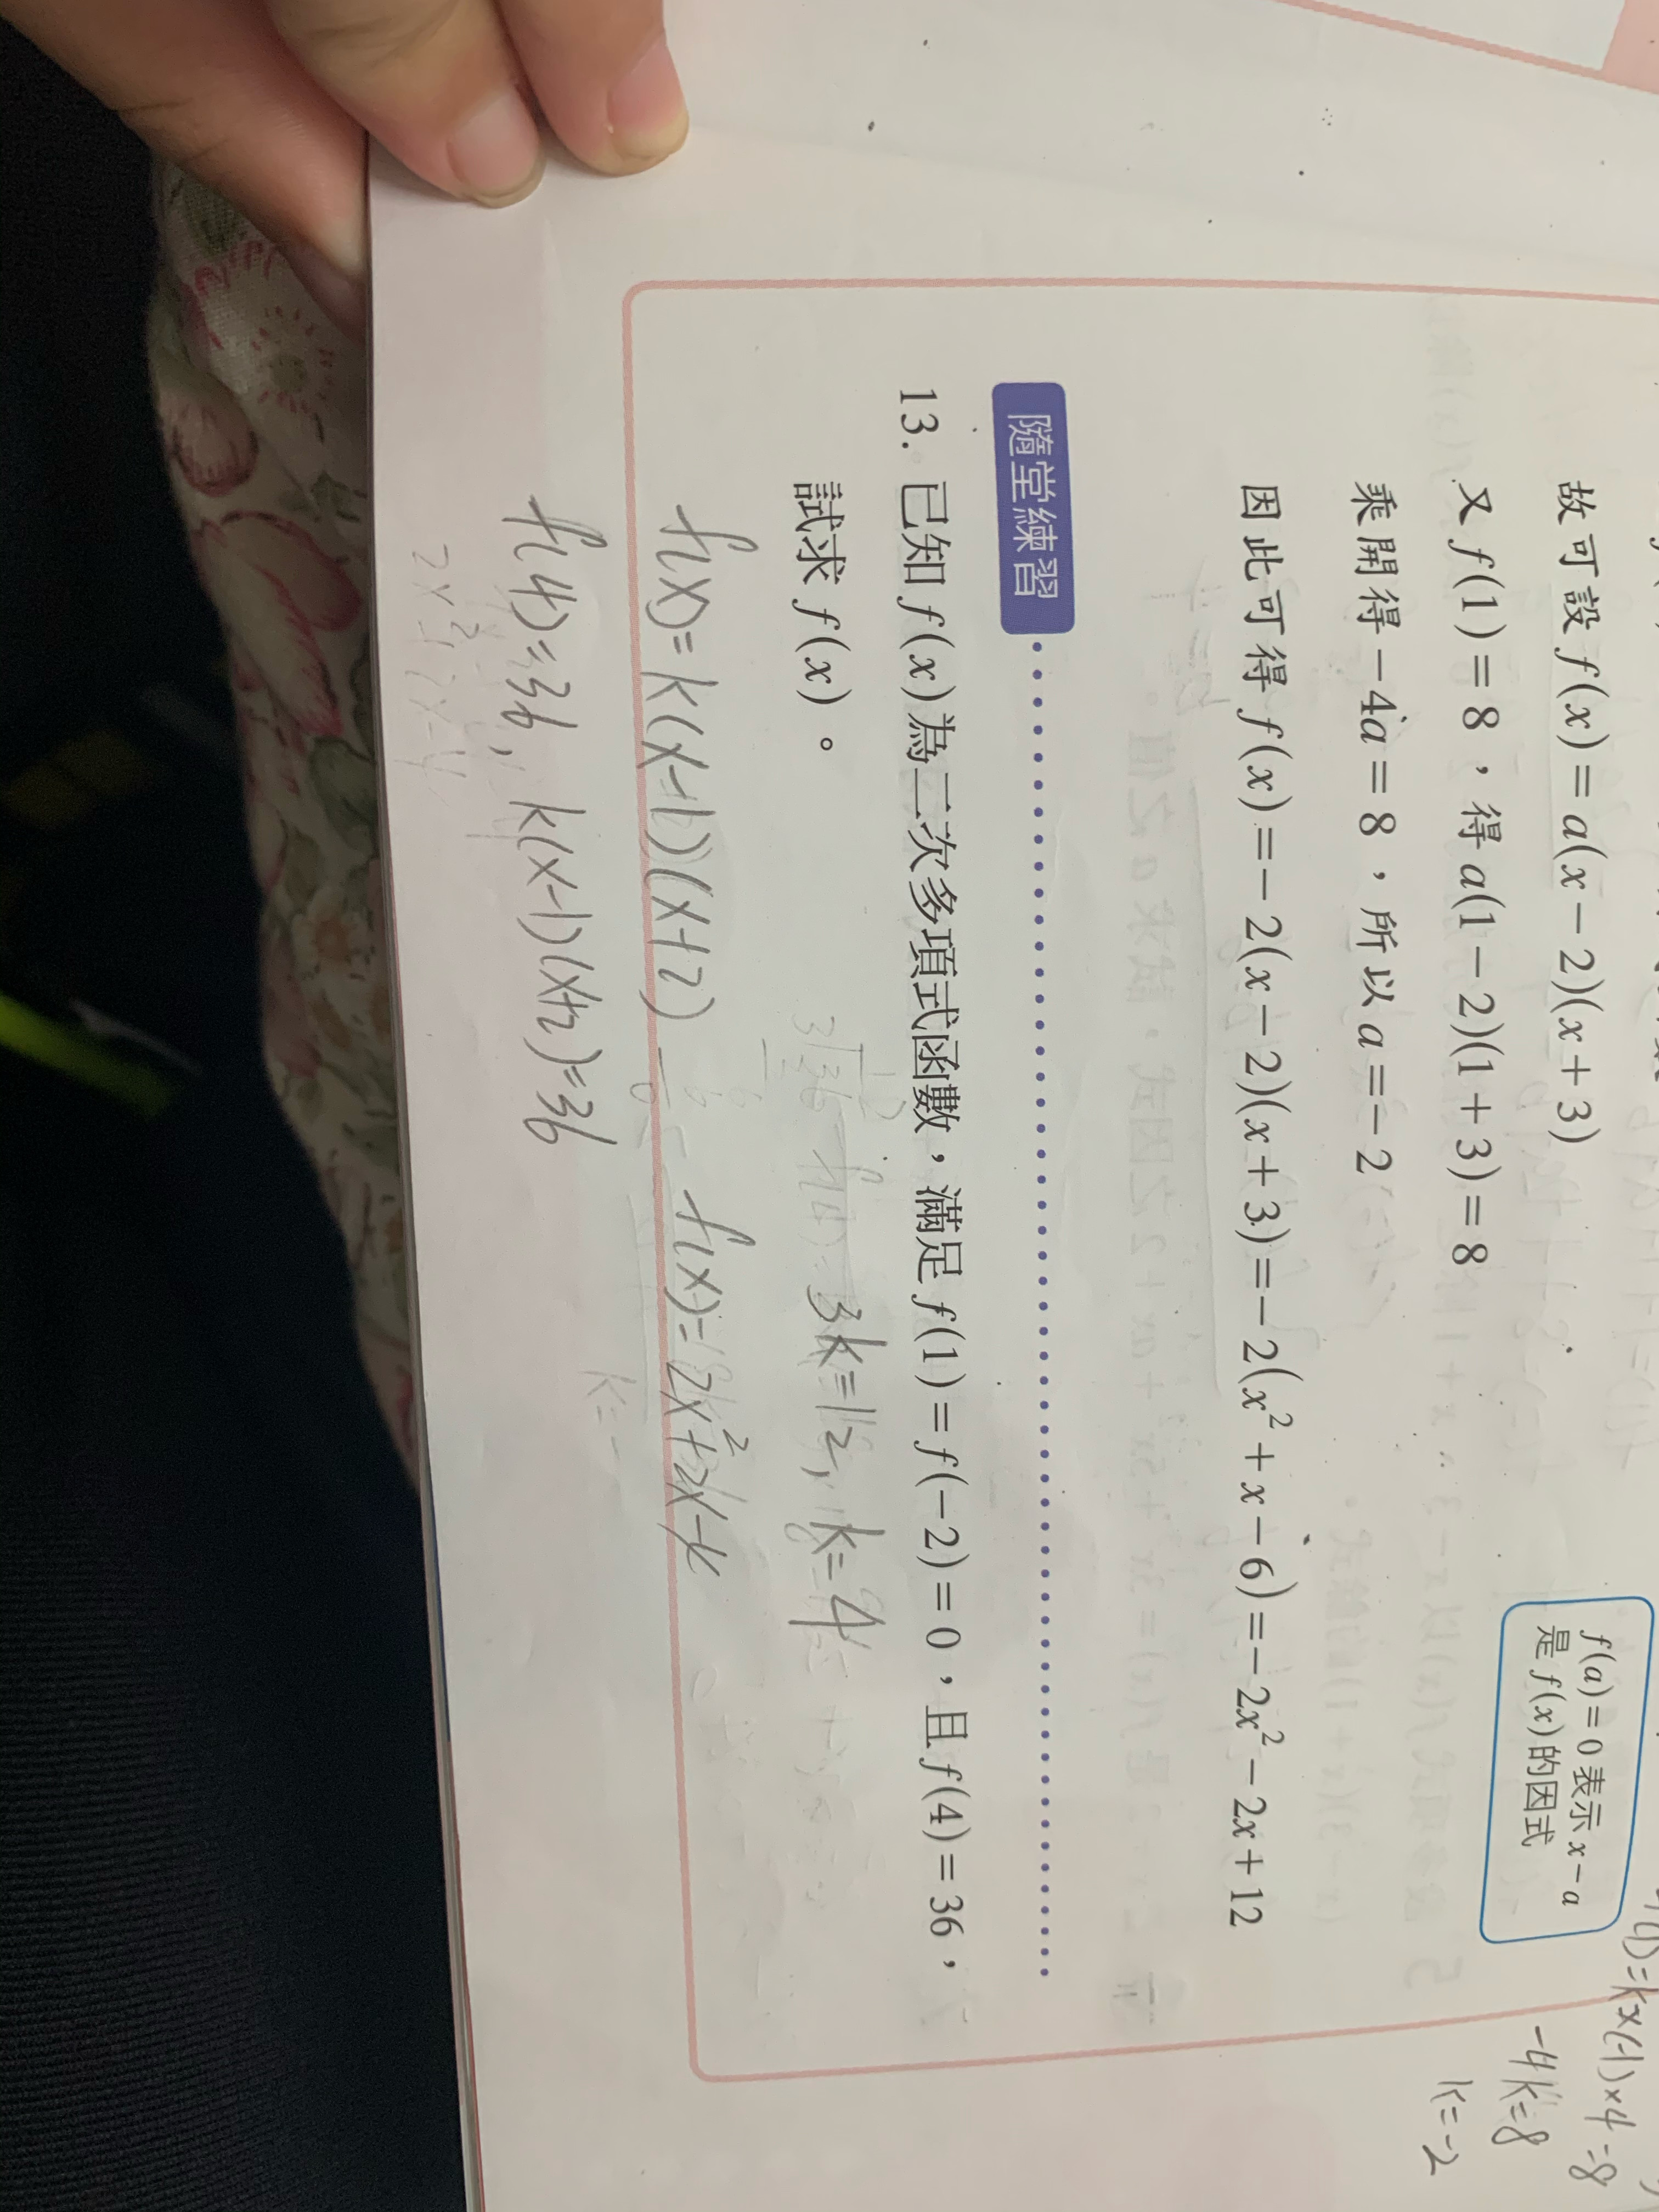 故可設 f(x)=a(x-2)(x+3)
又 f(1)=8,得 a(1-2)(1+3)=8
乘開得-4a=8,所以a=-2
因此可得 f(x)=-2(x-2)(x+3)=-2(x²+x-6)=-2x²-2x+12
f(a)=0表示x-a
是f(x)的因式
=k×(-1)×4=8
-4k=8
k=-2
隨堂練習
13. 已知 f(x)為二次多項式函數,滿足 f(1)=f(-2)=0,且 f(4)=36,
試求 f(x)。
3k=12, k=4
f(x)=k(x-1)(x+2)
f(x)=2x²+2x-4
f(4)=36, k(x-1)(x+2)=36